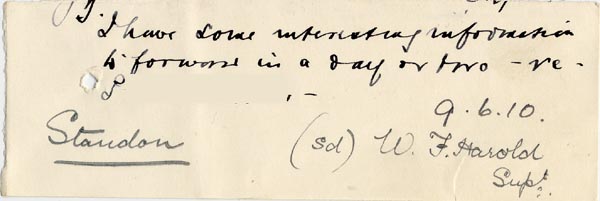 I have some interesting information
to forward in a day or two - re -
9.6.10.
Standon
(sd) W. F. Harold
Supt.